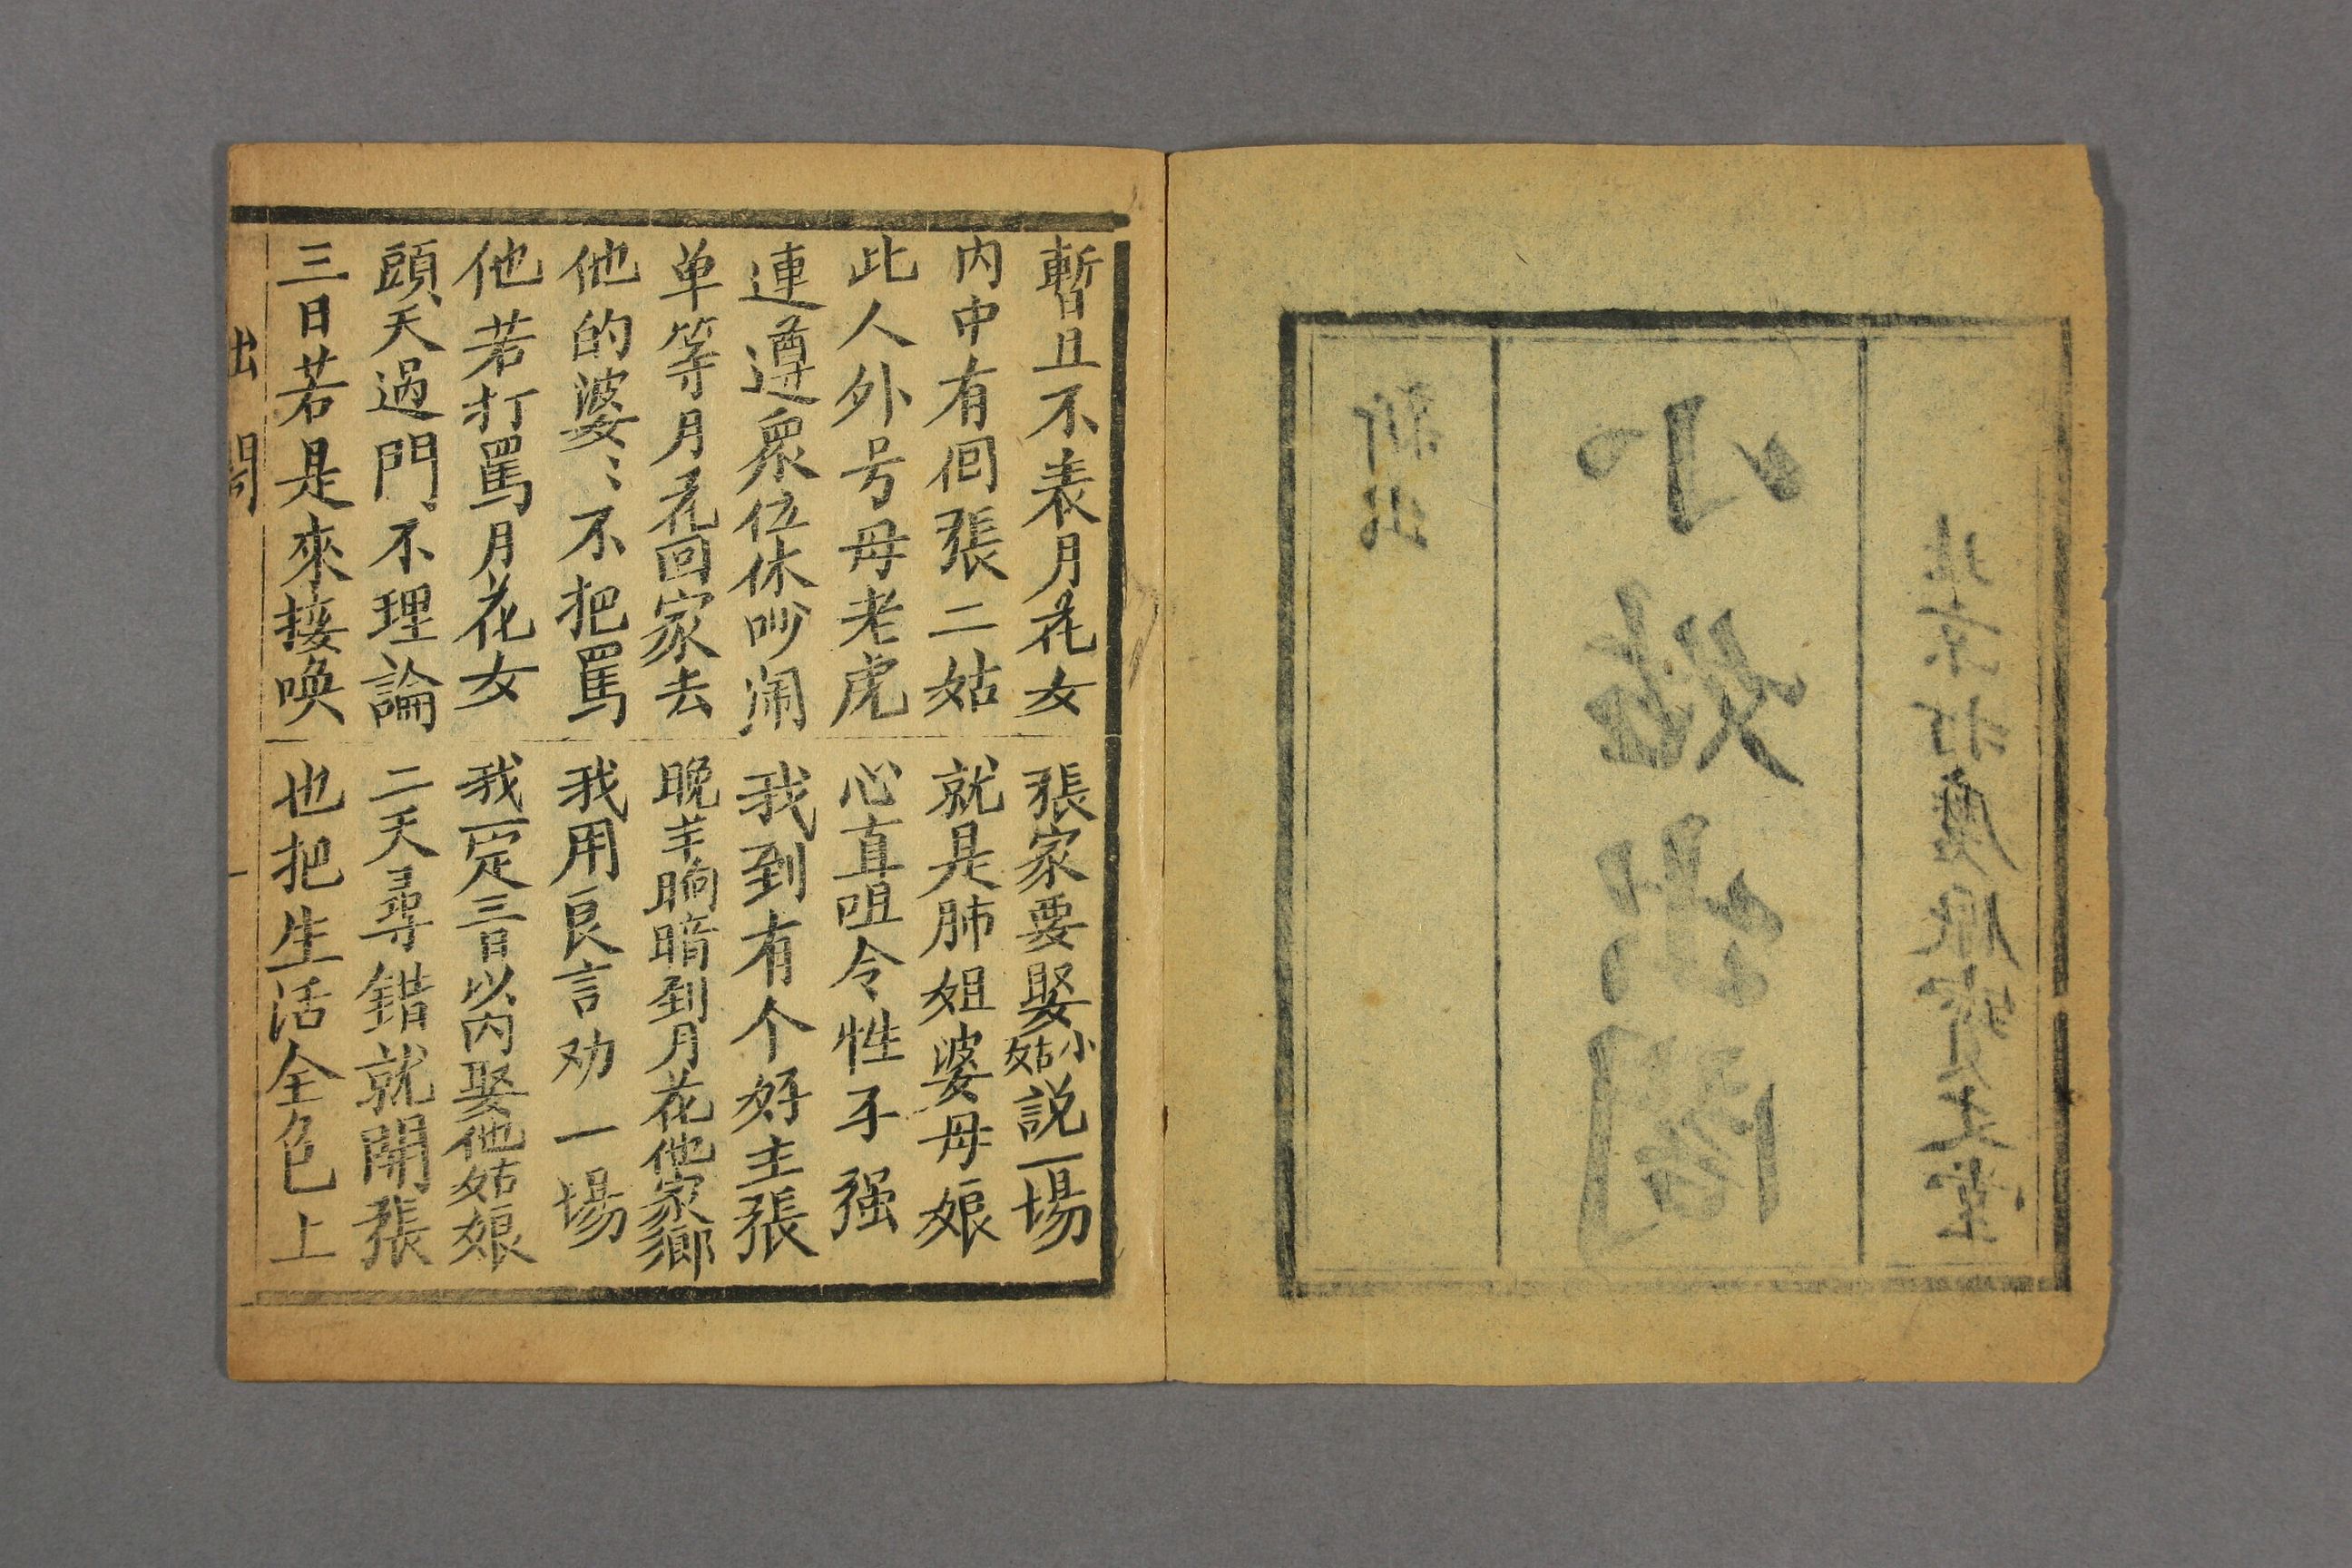 北京打磨厰寳文堂
小姑出閣
新出
暫且不表月花女 張家要娶小姑説一場
内中有佪張二姑 就是肺姐婆母娘
此人外号母老虎 心直咀令性子强
連遵眾位休吵闹 我到有个好主張
单等月花回家去 晚半晌暗到月花他家鄉
他的婆〻不把罵 我用良言劝一場
他若打罵月花女 我一定三日以内娶他姑娘
頭天過門不理論 二天尋錯就開張
三日若是來接唤 也把生活全色上
出閣 一